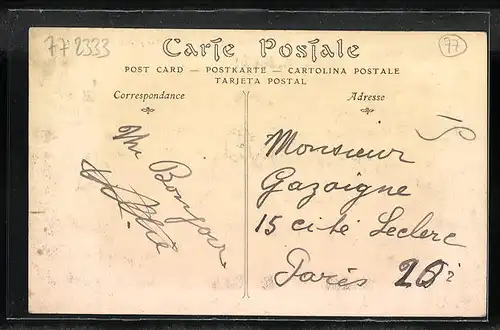 77 2333
77
Carte Postale
POST CARD — POSTKARTE — CARTOLINA POSTALE
TARJETA POSTAL
Correspondance
Adresse
Un Bonjour
Monsieur
Gazaigne
15 cité Leclerc
Paris 20